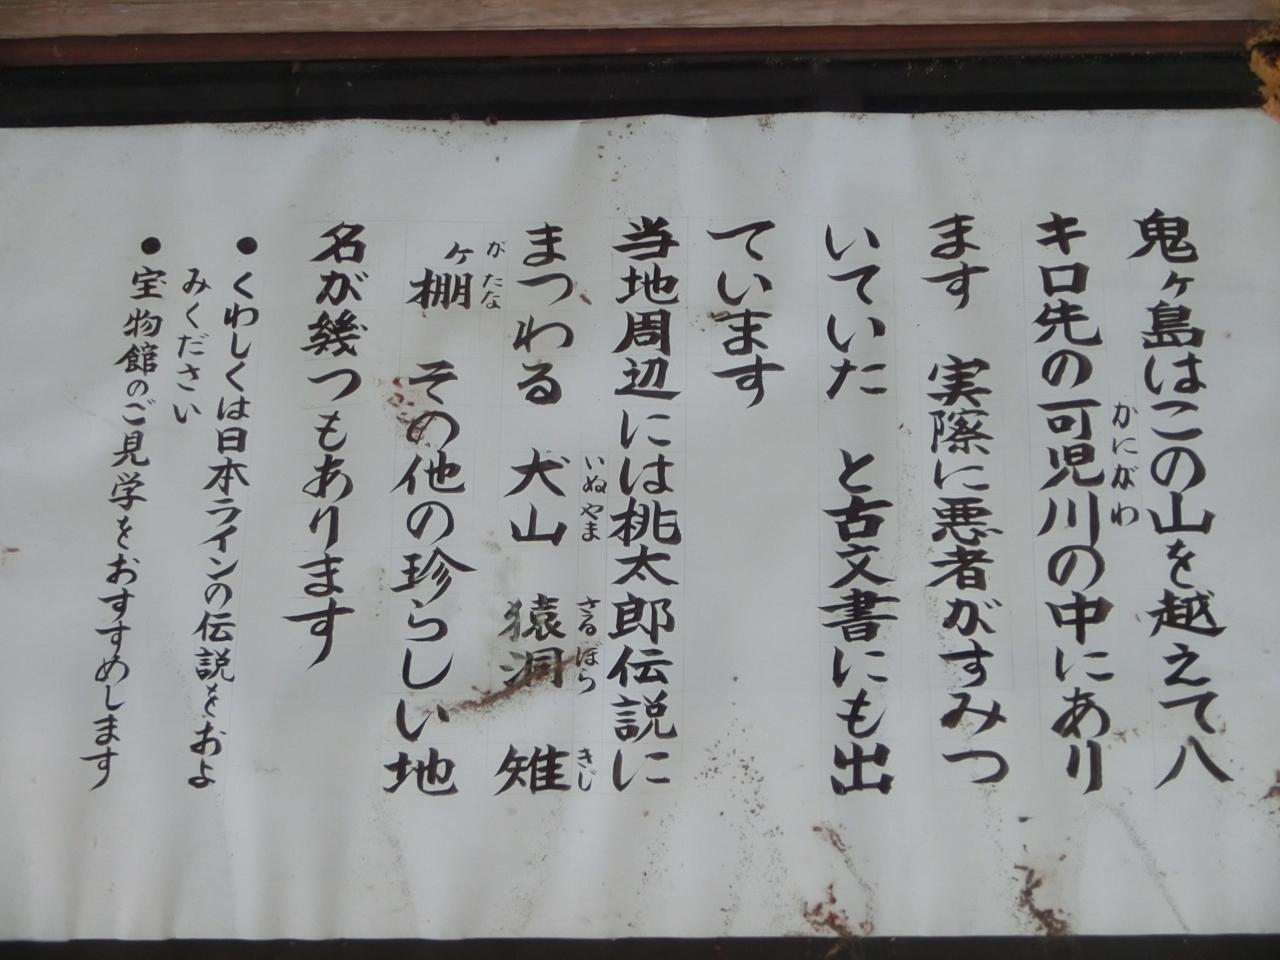 鬼ヶ島はこの山を越えて八
キロ先の可児川の中にあり
かにがわ
ます 実際に悪者がすみつ
いていた と古文書にも出
ています
当地周辺には桃太郎伝説に
まつわる 犬山 猿洞 雉
いぬやま さるぼら きじ
ヶ棚 その他の珍らしい地
がたな
名が幾つもあります
●くわしくは日本ラインの伝説をおよ
みください
●宝物館のご見学をおすすめします